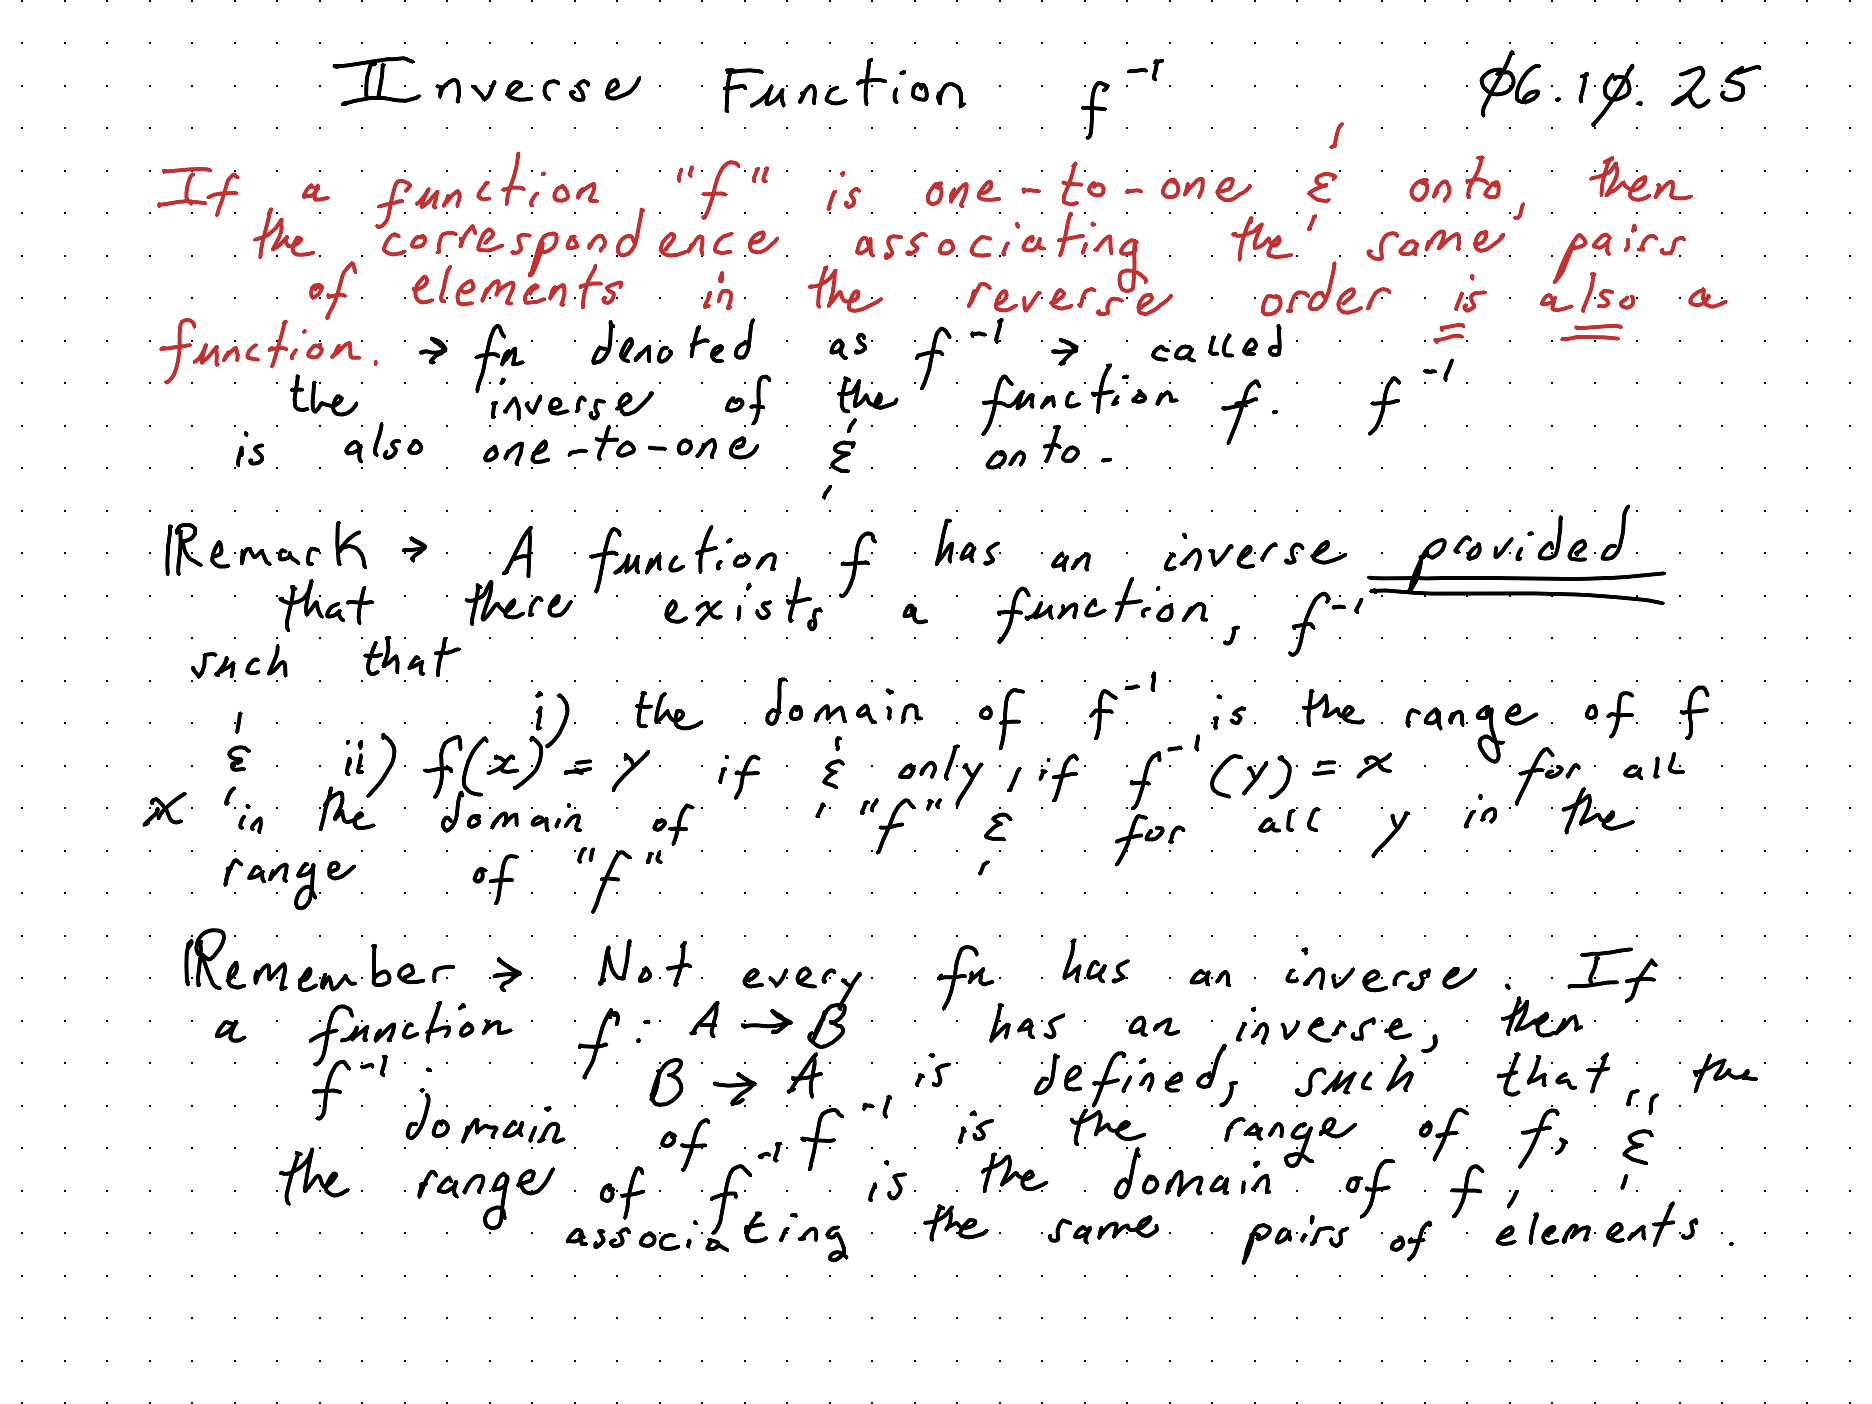 Inverse Function f⁻¹ 06.10.25
If a function "f" is one-to-one & onto, then
the correspondence associating the same pairs
of elements in the reverse order is also a
function. → fn denoted as f⁻¹ → called
the inverse of the function f. f⁻¹
is also one-to-one & onto.
Remark → A function f has an inverse provided
that there exists a function, f⁻¹
such that
i) the domain of f⁻¹ is the range of f
& ii) f(x) = y if & only if f⁻¹(y) = x for all
x in the domain of "f" & for all y in the
range of "f"
Remember → Not every fn has an inverse. If
a function f: A → B has an inverse, then
f⁻¹: B → A is defined, such that, the
domain of f⁻¹ is the range of f, &
the range of f⁻¹ is the domain of f,
associating the same pairs of elements.